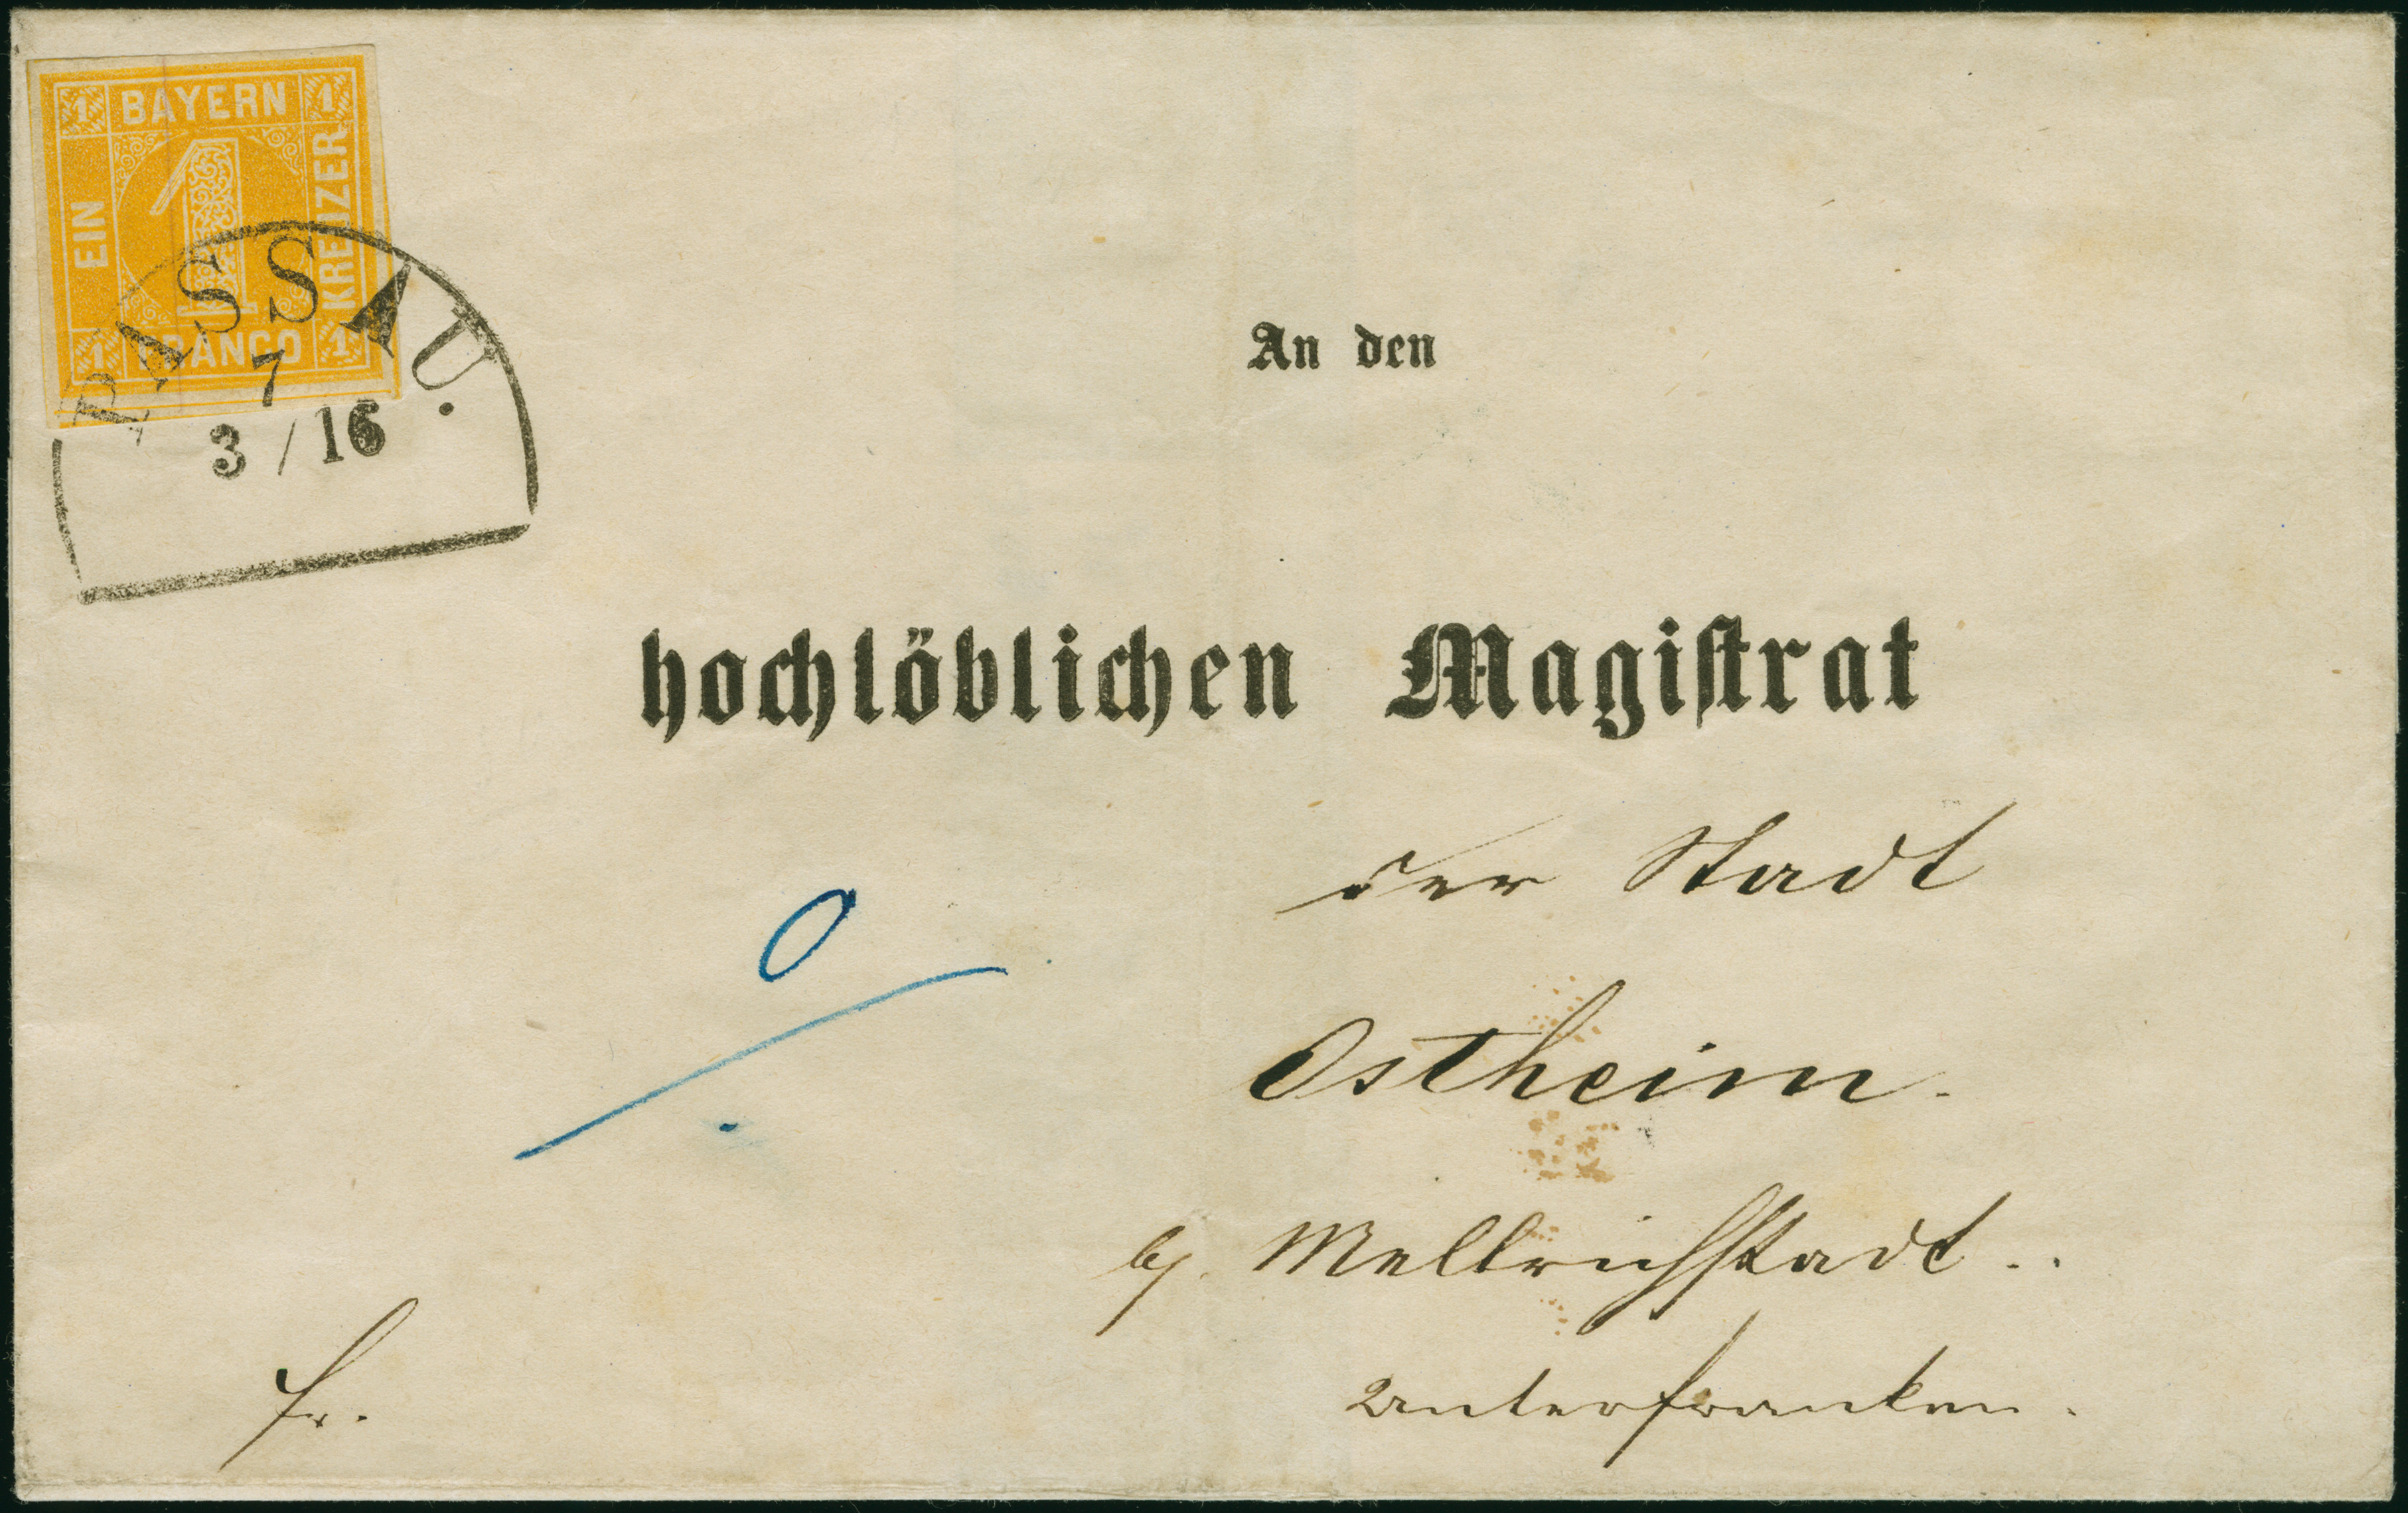 1 BAYERN 1
EIN
1
KREUZER
1 FRANCO 1
PASSAU.
7
3 / 16
An den
hochlöblichen Magiſtrat
der Stadt
0
Ostheim.
Mellrichſtadt..
Unterfranken.
fr.